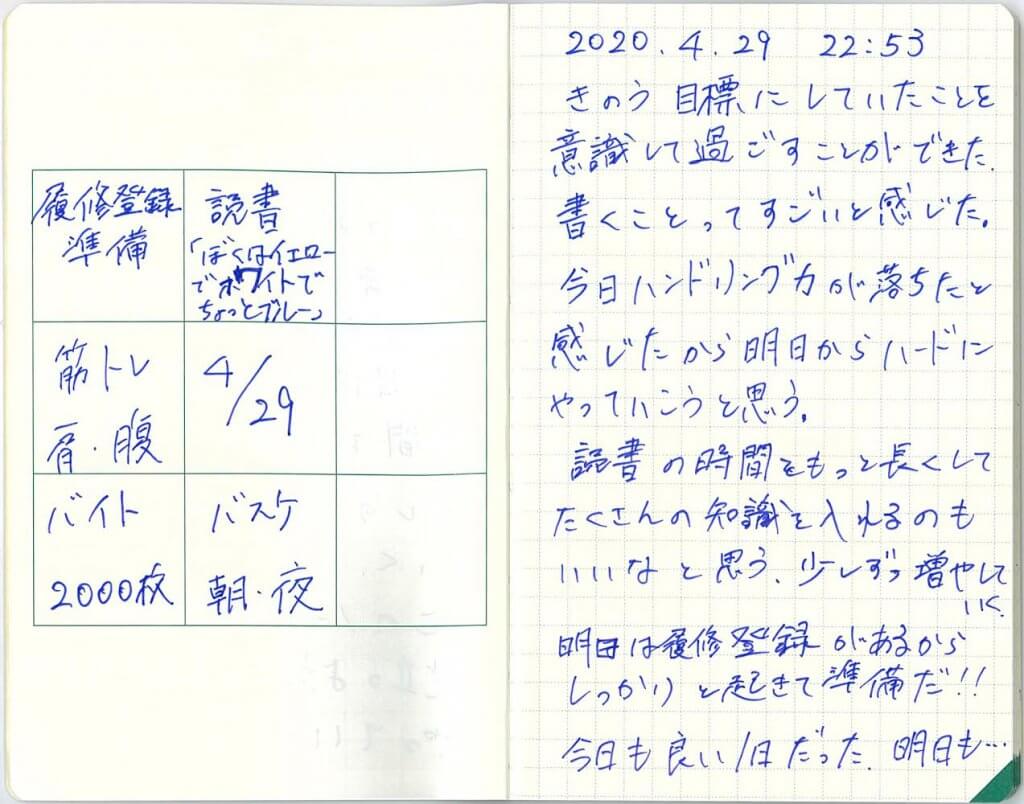 履修登録
準備
読書
「ぼくはイエロー
でホワイトで
ちょっとブルー」
筋トレ
肩・腹
4/29
バイト
2000枚
バスケ
朝・夜
2020.4.29 22:53
きのう目標にしていたことを
意識して過ごすことができた.
書くことってすごいと感じた。
今日ハンドリング力が落ちたと
感じたから明日からハードに
やっていこうと思う。
読書の時間をもっと長くして
たくさんの知識を入れるのも
いいなと思う.少しずつ増やして
いく.
明日は履修登録があるから
しっかりと起きて準備だ!!
今日も良い1日だった.明日も…